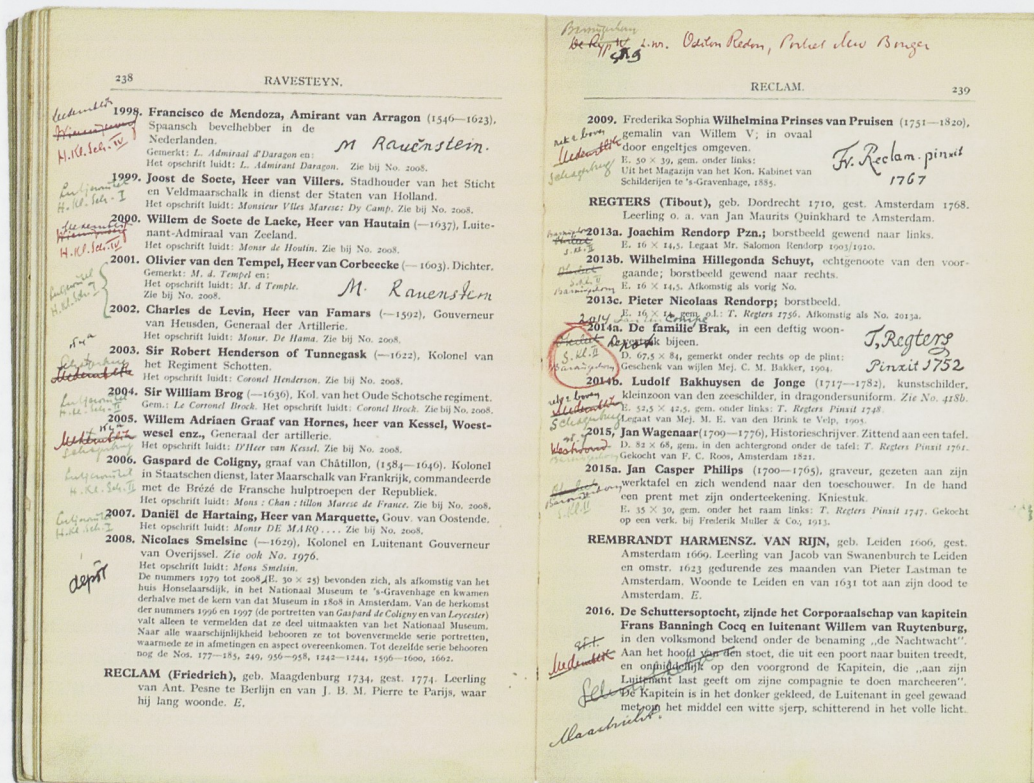 238
RAVESTEYN.
1998. Francisco de Mendoza, Amirant van Arragon (1546—1623),
Spaansch bevelhebber in de
Nederlanden.
Gemerkt: L. Admiraal d'Daragon en:
Het opschrift luidt: L. Admirant Daragon. Zie bij No. 2008.
M Rauenstein.
H. Kl. Sch. IV
1999. Joost de Soete, Heer van Villers. Stadhouder van het Sticht
en Veldmaarschalk in dienst der Staten van Holland.
Het opschrift luidt: Monsieur Vlles Maresc: Dy Camp. Zie bij No. 2008.
H. Kl. Sch. I
2000. Willem de Soete de Lacke, Heer van Hautain (—1637), Luite-
nant-Admiraal van Zeeland.
Het opschrift luidt: Monsr de Houtin. Zie bij No. 2008.
H. Kl. Sch. IV
2001. Olivier van den Tempel, Heer van Corbeecke (—1603). Dichter,
Gemerkt: M. d. Tempel en:
Het opschrift luidt: M. d Temple.
Zie bij No. 2008.
M. Rauenstein
2002. Charles de Levin, Heer van Famars (—1592), Gouverneur
van Heusden, Generaal der Artillerie.
Het opschrift luidt: Monsr. De Hama. Zie bij No. 2008.
2003. Sir Robert Henderson of Tunnegask (—1622), Kolonel van
het Regiment Schotten.
Het opschrift luidt: Coronel Henderson. Zie bij No. 2008.
Medemblik
2004. Sir William Brog (—1636), Kol. van het Oude Schotsche regiment.
Gem.: Le Corronel Brock. Het opschrift luidt: Coronel Brock. Zie bij No. 2008.
2005. Willem Adriaen Graaf van Hornes, heer van Kessel, Woest-
wesel enz., Generaal der artillerie.
Het opschrift luidt: D'Heer van Kessel. Zie bij No. 2008.
Medemblik
2006. Gaspard de Coligny, graaf van Châtillon, (1584—1646). Kolonel
in Staatschen dienst, later Maarschalk van Frankrijk, commandeerde
met de Brézé de Fransche hulptroepen der Republiek.
Het opschrift luidt: Mons : Chan : tillon Maresc de France. Zie bij No. 2008.
H. Kl. Sch. II
2007. Daniël de Hartaing, Heer van Marquette, Gouv. van Oostende.
Het opschrift luidt: Monsr DE MARQ.... Zie bij No. 2008.
H. Kl. Sch. I
2008. Nicolaes Smelsinc (—1629), Kolonel en Luitenant Gouverneur
van Overijssel. Zie ook No. 1976.
Het opschrift luidt: Mons Smelsin.
depôt
De nummers 1979 tot 2008 (E. 30 × 25) bevonden zich, als afkomstig van het
huis Honselaarsdijk, in het Nationaal Museum te 's-Gravenhage en kwamen
derhalve met de kern van dat Museum in 1808 in Amsterdam. Van de herkomst
der nummers 1996 en 1997 (de portretten van Gaspard de Coligny en van Leycester)
valt alleen te vermelden dat ze deel uitmaakten van het Nationaal Museum.
Naar alle waarschijnlijkheid behooren ze tot bovenvermelde serie portretten,
waarmede ze in afmetingen en aspect overeenkomen. Tot dezelfde serie behooren
nog de Nos. 177—185, 249, 956—958, 1242—1244, 1596—1600, 1662.
RECLAM (Friedrich), geb. Maagdenburg 1734, gest. 1774. Leerling
van Ant. Pesne te Berlijn en van J. B. M. Pierre te Parijs, waar
hij lang woonde. E.
Odilon Redon, Portret Mev Bonger
RECLAM.
239
2009. Frederika Sophia Wilhelmina Prinses van Pruisen (1751—1820),
gemalin van Willem V; in ovaal
door engeltjes omgeven.
E. 50 × 39, gem. onder links:
Uit het Magazijn van het Kon. Kabinet van
Schilderijen te 's-Gravenhage, 1885.
Fr. Reclam. pinxit
1767
Medemblik
REGTERS (Tibout), geb. Dordrecht 1710, gest. Amsterdam 1768.
Leerling o. a. van Jan Maurits Quinkhard te Amsterdam.
2013a. Joachim Rendorp Pzn.; borstbeeld gewend naar links.
E. 16 × 14,5. Legaat Mr. Salomon Rendorp 1903/1910.
2013b. Wilhelmina Hillegonda Schuyt, echtgenoote van den voor-
gaande; borstbeeld gewend naar rechts.
E. 16 × 14,5. Afkomstig als vorig No.
2013c. Pieter Nicolaas Rendorp; borstbeeld.
E. 16 × 14, gem. o.l.: T. Regters 1756. Afkomstig als No. 2013a.
2014
2014a. De familie Brak, in een deftig woon-
vertrek bijeen.
D. 67,5 × 84, gemerkt onder rechts op de plint:
Geschenk van wijlen Mej. C. M. Bakker, 1904.
T, Regters
Pinxit 1752
S. Kl. II
2014b. Ludolf Bakhuysen de Jonge (1717—1782), kunstschilder,
kleinzoon van den zeeschilder, in dragondersuniform. Zie No. 418b.
E. 52,5 × 42,5, gem. onder links: T. Regters Pinxit 1748.
Legaat van Mej. M. E. van den Brink te Velp, 1905.
Medemblik
2015, Jan Wagenaar (1709—1776), Historieschrijver. Zittend aan een tafel.
D. 82 × 68, gem. in den achtergrond onder de tafel: T. Regters Pinxit 1761.
Gekocht van F. C. Roos, Amsterdam 1821.
2015a. Jan Casper Philips (1700—1765), graveur, gezeten aan zijn
werktafel en zich wendend naar den toeschouwer. In de hand
een prent met zijn onderteekening. Kniestuk.
E. 35 × 30, gem. onder het raam links: T. Regters Pinxit 1747. Gekocht
op een verk. bij Frederik Muller & Co., 1913.
REMBRANDT HARMENSZ. VAN RIJN, geb. Leiden 1606, gest.
Amsterdam 1669. Leerling van Jacob van Swanenburch te Leiden
en omstr. 1623 gedurende zes maanden van Pieter Lastman te
Amsterdam. Woonde te Leiden en van 1631 tot aan zijn dood te
Amsterdam. E.
2016. De Schuttersoptocht, zijnde het Corporaalschap van kapitein
Frans Banningh Cocq en luitenant Willem van Ruytenburg,
in den volksmond bekend onder de benaming „de Nachtwacht".
Aan het hoofd van den stoet, die uit een poort naar buiten treedt,
en onmiddelijk op den voorgrond de Kapitein, die „aan zijn
Luitenant last geeft om zijne compagnie te doen marcheeren".
De Kapitein is in het donker gekleed, de Luitenant in geel gewaad
met om het middel een witte sjerp, schitterend in het volle licht.
Medemblik
Maastricht.